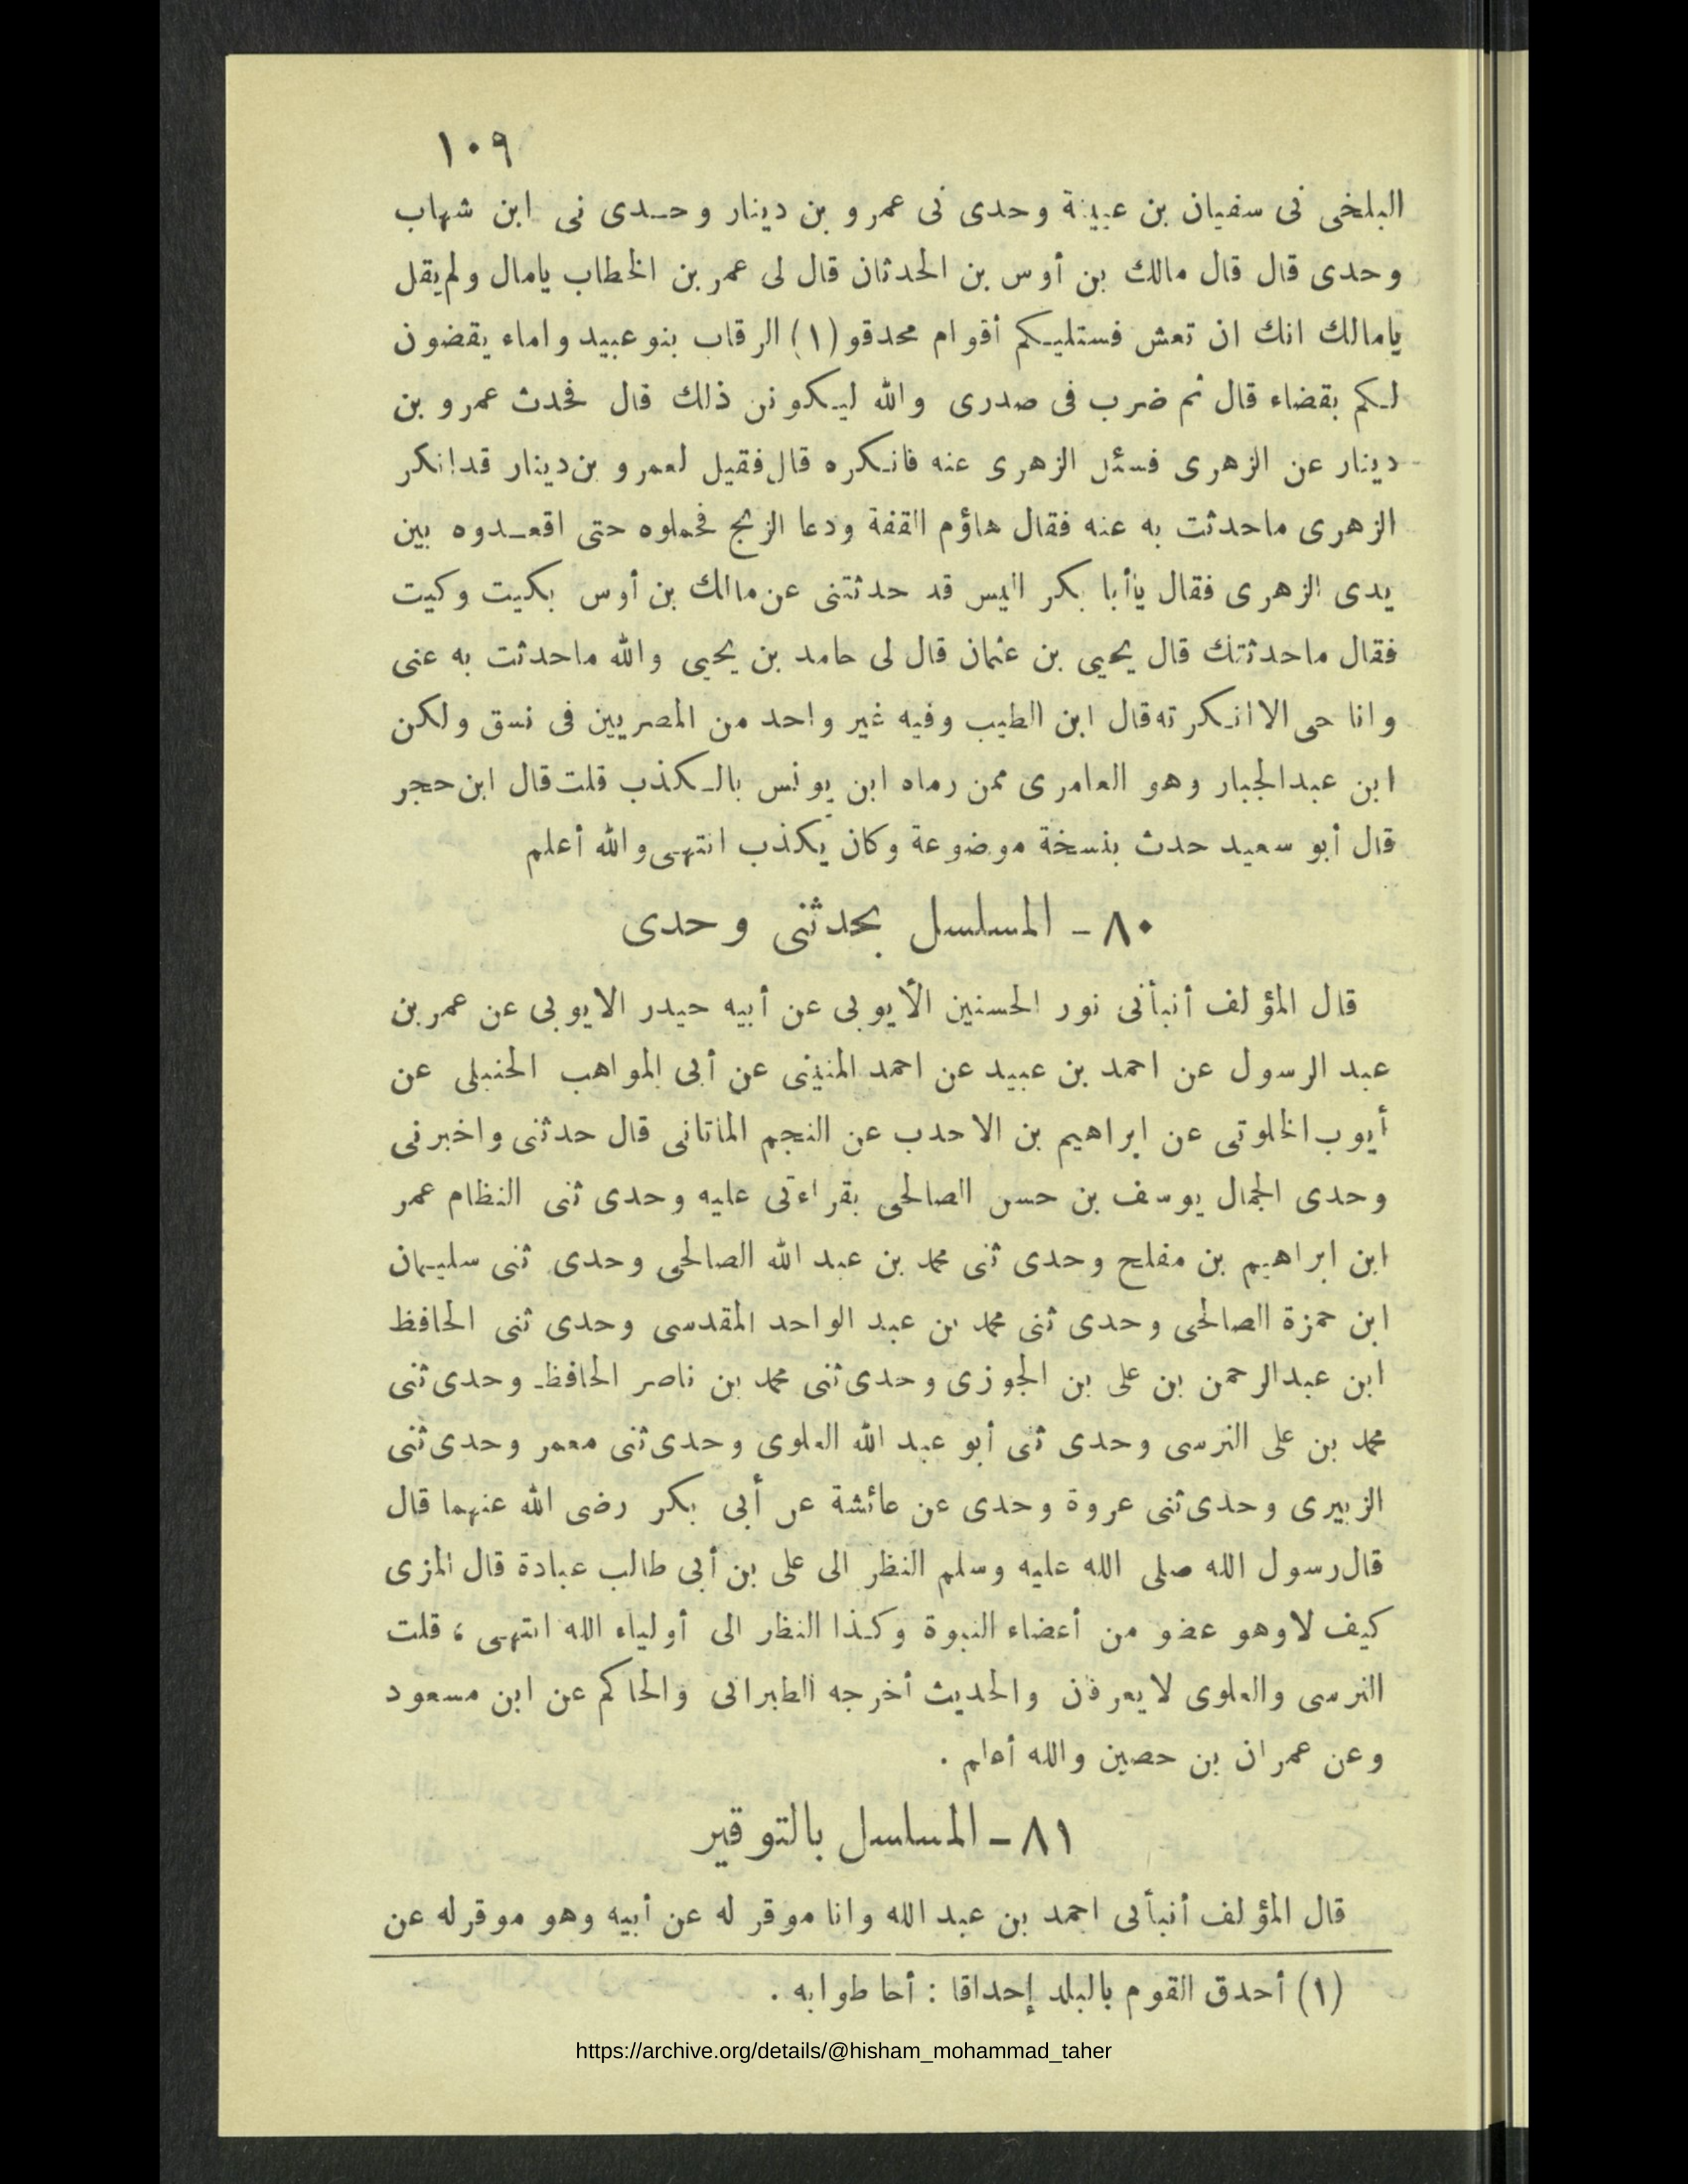 ١٠٩
البلخى نى سفيان بن عيينة وحدى نى عمرو بن دينار وحدى نى ابن شهاب
وحدى قال قال مالك بن أوس بن الحدثان قال لى عمر بن الخطاب يامال ولم يقل
يامالك انك ان تعش فستليكم أقوام محدقو (١) الرقاب بنو عبيد واماء يقضون
لكم بقضاء قال ثم ضرب فى صدرى والله ليكونن ذلك قال فحدث عمرو بن
دينار عن الزهرى فسئل الزهرى عنه فانكره قال فقيل لعمرو بن دينار قد انكر
الزهرى ماحدثت به عنه فقال هاؤم القفة ودعا الزنج فحملوه حتى اقعدوه بين
يدى الزهرى فقال يأأبا بكر اليس قد حدثتنى عن مالك بن أوس بكيت وكيت
فقال ماحدثتك قال يحيى بن عثمان قال لى حامد بن يحيى والله ماحدثت به عنى
وانا حى الا انكرته قال ابن الطيب وفيه غير واحد من المصريين فى نسق ولكن
ابن عبد الجبار وهو العامرى ممن رماه ابن يونس بالكذب قلت قال ابن حجر
قال أبو سعيد حدث بنسخة موضوعة وكان يكذب انتهى والله أعلم
٨٠ - المسلسل بحدثنى وحدى
قال المؤلف أنبأنى نور الحسنين الأيوبى عن أبيه حيدر الايوبى عن عمر بن
عبد الرسول عن احمد بن عبيد عن احمد المنينى عن أبى المواهب الحنبلى عن
أيوب الخلوتى عن ابراهيم بن الاحدب عن النجم الماتانى قال حدثنى واخبرنى
وحدى الجمال يوسف بن حسن الصالحى بقراءتى عليه وحدى ثنى النظام عمر
ابن ابراهيم بن مفلح وحدى ثنى محمد بن عبد الله الصالحى وحدى ثنى سليمان
ابن حمزة الصالحى وحدى ثنى محمد بن عبد الواحد المقدسى وحدى ثنى الحافظ
ابن عبد الرحمن بن على بن الجوزى وحدى ثنى محمد بن ناصر الحافظ وحدى ثنى
محمد بن على النرسى وحدى ثنى أبو عبد الله العلوى وحدى ثنى معمر وحدى ثنى
الزبيرى وحدى ثنى عروة وحدى عن عائشة عن أبى بكر رضى الله عنهما قال
قال رسول الله صلى الله عليه وسلم النظر الى على بن أبى طالب عبادة قال المزى
كيف لا وهو عضو من أعضاء النبوة وكذا النظر الى أولياء الله انتهى ، قلت
النرسى والعلوى لا يعرفان والحديث أخرجه الطبرانى والحاكم عن ابن مسعود
وعن عمران بن حصين والله أعلم .
٨١ - المسلسل بالتوقير
قال المؤلف أنبأنى احمد بن عبد الله وانا موقر له عن أبيه وهو موقر له عن
(١) أحدق القوم بالبلد إحداقا : أحاطوا به .
https://archive.org/details/@hisham_mohammad_taher